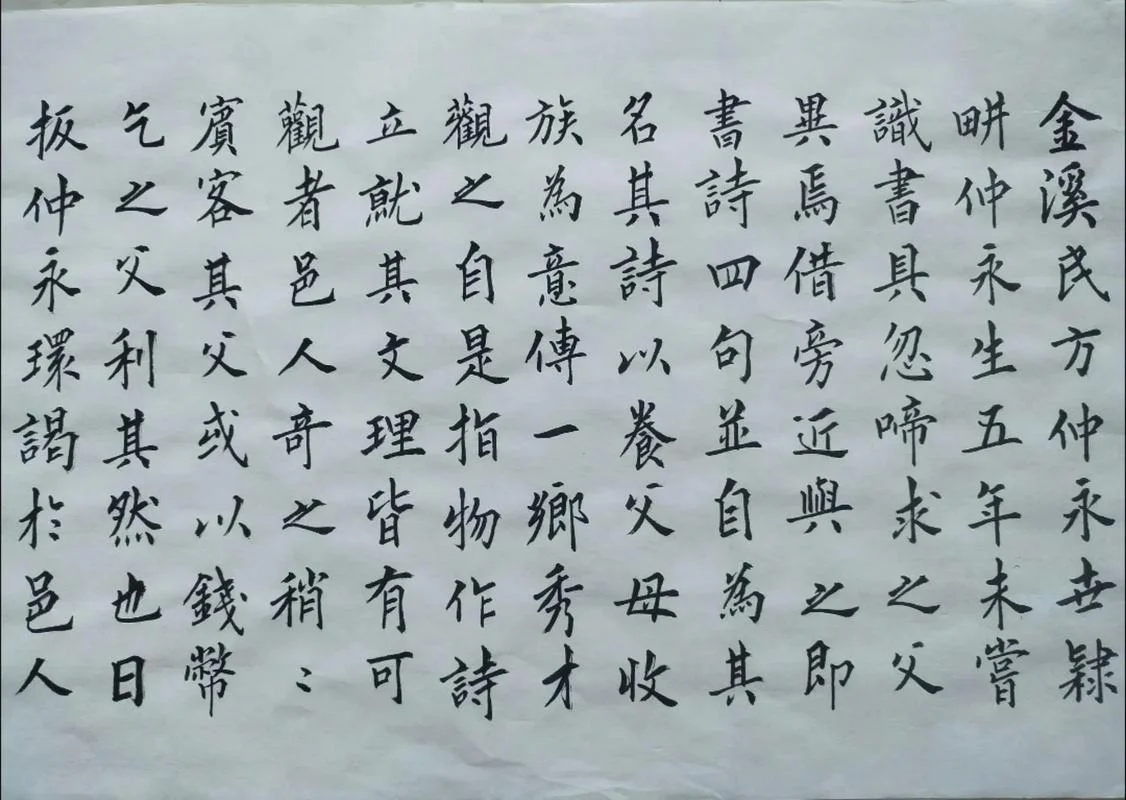 金溪民方仲永世隸
畊仲永生五年未嘗
識書具忽啼求之父
異焉借旁近與之即
書詩四句並自為其
名其詩以養父母收
族為意傳一鄉秀才
觀之自是指物作詩
立就其文理皆有可
觀者邑人奇之稍〻
賓客其父或以錢幣
乞之父利其然也日
扳仲永環謁於邑人